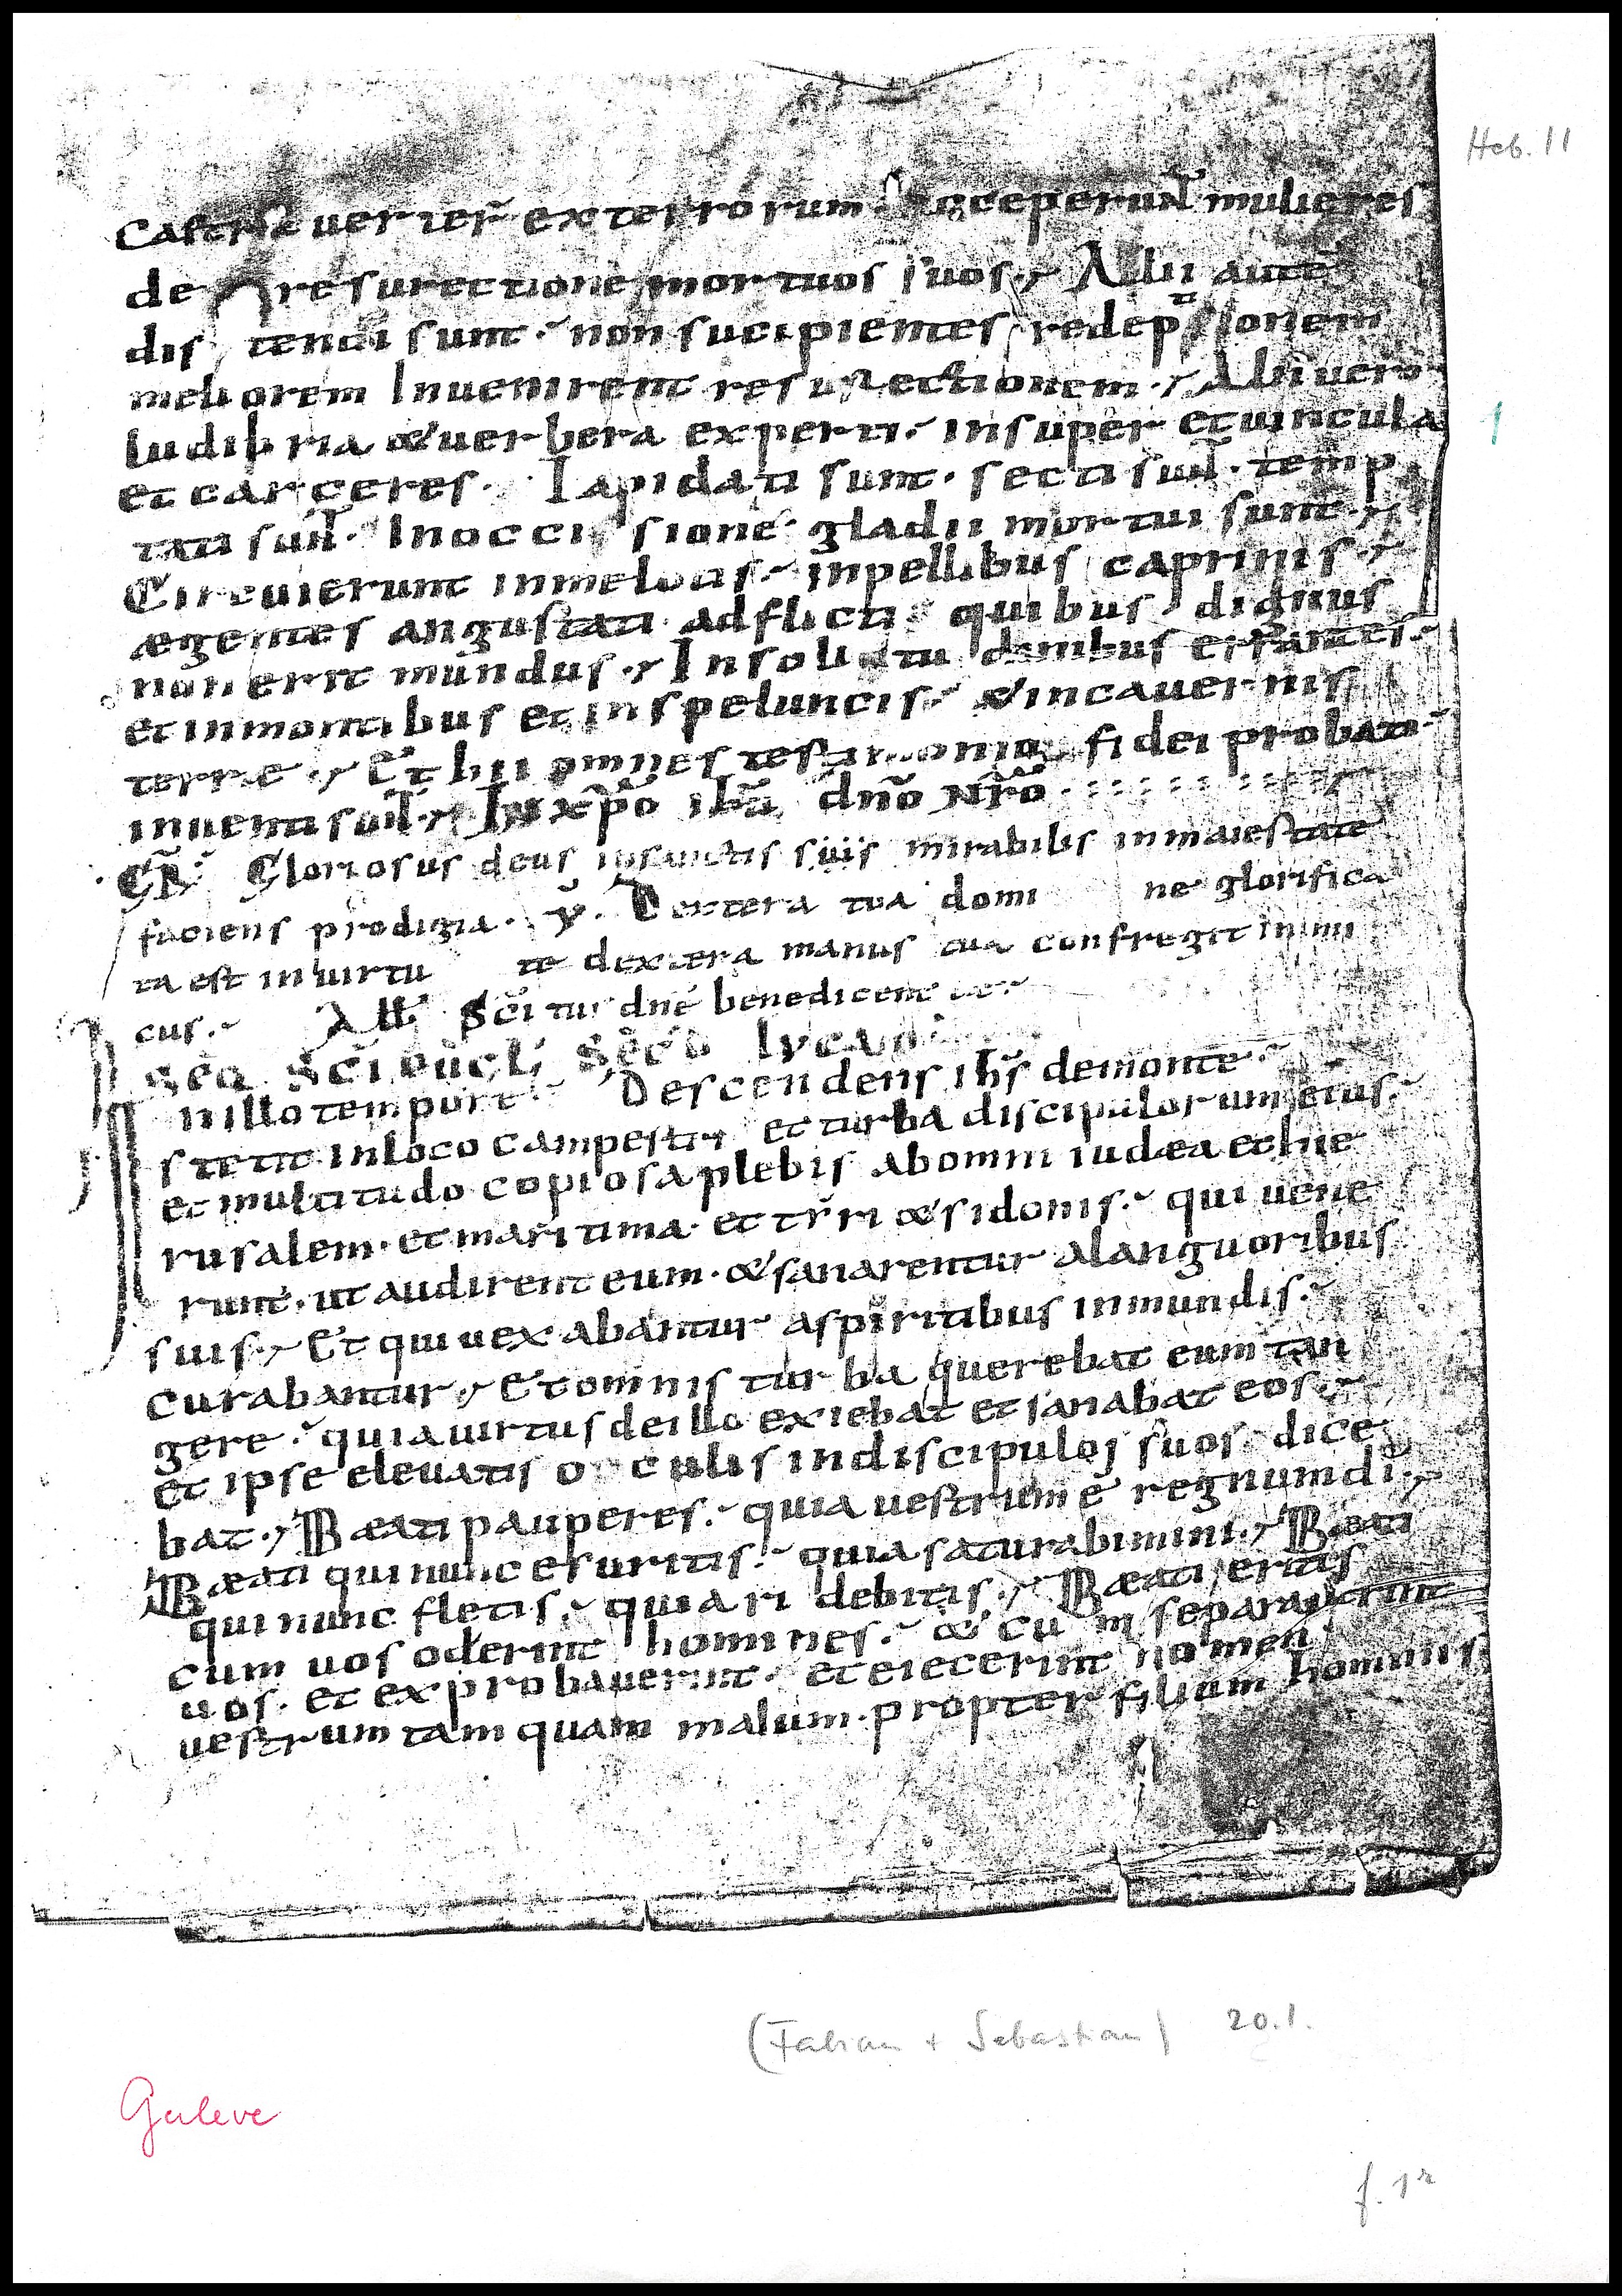 Heb. 11
Castra uerter̃ exterrorum. Acceperunt mulieres
de resurectione mortuos suos. Alii autē
dis tenti sunt. non sucipientes redeptionem
meliorem Inuenirent resurectionem. Alii uero
ludibria & uerbera experti. insuper et uincula
et carceres. Iapidati sunt. secti sunt. temp
tati sunt. Inoccis sione gladii mortui sunt.
Circuierunt inmelotis. inpellibus caprinis.
ægentes angustati adflicti quibus dignus
non erit mundus. Insolitu dinibus errantes.
et inmontibus et inspeluncis. & incauernis
terræ. Et hii omnes testimonio fidei probati
inuenti sunt. In xp̃o ihũ dño nr̃o
1
GR̃ Gloriosus deus insanctis suis mirabilis inmaiestate
faciens prodigia. ꝟ. Dextera tua domi ne glorifica
ta est inuirtu te dextera manus tua confregit inimi
cus. All̃ Sc̃i tui dñe benedicent te.
Seq̃ Sc̃i euḡl Sec̃d lucam
Nillo tempore. Descendens ihs̃ demonte.
stetit inloco campestri et turba discipulorum eius.
et multitudo copiosa plebis abomni iudæa et hie
rusalem. et maritima. et tyri & sidonis. qui uene
runt. ut audirent eum. & sanarentur alanguoribus
suis. Et qui uexabantur aspiritibus inmundis.
curabantur. Et omnis turba querebat eum tan
gere. quia uirtus deillo exiebat et sanabat eos.
et ipse eleuatis o culis indiscipulos suos dice
bat. Bæati pauperes. quia uestrum ē regnum dī.
Bæati qui nunc esuritis. quia saturabimini. Bæati
qui nunc fletis. quia ri debitis. Bæati eritis
cum uos oderint homines. & cu m separauerint
uos. et exprobauerint. et eiecerint nomen
uestrum tam quam malum. propter filium hominis
(Fabian + Sebastian) 20.1.
Guleve
f. 1r